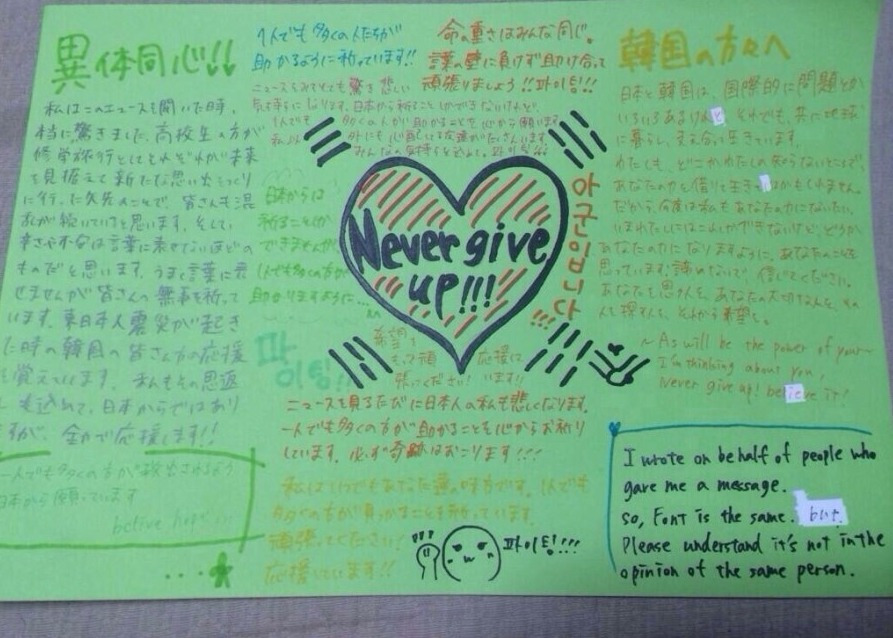 異体同心!!
私はこのニュースを聞いた時、
本当に驚きました。高校生の方が
修学旅行としてそれぞれが未来
を見据えて新たな思い出をつくり
に行った矢先のことで、皆さんも混
乱が続いていけと思います。そして、
辛さや不安は言葉に表せないほどの
ものだと思います。うまく言葉に表
せませんが皆さんの無事を祈って
います。東日本大震災が起き
た時の韓国の皆さん方の応援
を覚えています。そんもその恩返
しも込めて、日本からではあり
ますが、全力で応援します!!
一人でも多くの方が救出されるよう
日本から願っています
belive hope...
1人でも多くの人たちが
助かるように祈っています!!
命の重さはみんな同じ。
言葉の壁に負けず助け合って
頑張りましょう!!파이팅!!!
ニュースをみてとても驚き悲しい
気持ちに
日本から祈ることしかできないけれど、
1人でも多くの人が助かることを心から願います
私以外にも心配してる友達がたくさんいます
みんなの気持ちを込めて。파이팅!!
日本からは
祈ることしか
できませんが
1人でも多くの方が
助かりますように...
파이팅!!
Never give
up!!!
아군입니다!!!
希望を
もって頑張ってください!
応援しています!!
ニュースを見るたびに日本人の私も悲しくなります。
一人でも多くの方が助かることを心からお祈り
しています。必ず奇跡はおこります!!!
私はいつでもあなた達の味方です。1人でも
多くの方が助かることを祈っています。
頑張ってください!
応援しています!!
파이팅!!!
韓国の方々へ
日本と韓国は、国際的に問題とか
いろいろあるけれど、それでも、共に地球
に暮らし、支え合って生きています。
わたしも、どこかわたしの知らないところで、
あなたの力を借りて生きているのかもしれません。
だから、今度は私もあなたの力になりたい。
いまわたしにはこれしかできないけど、どうか
あなたの力になりますように、あなたのことを
思っています。諦めないで、信じてください。
あなたを思う人を、あなたの大切な人を、その
人を探す人を、それから希望を。
~As will be the power of your~
I'm thinking about you,
Never give up! believe it!
I wrote on behalf of people who
gave me a message.
so, Font is the same. but
Please understand it's not in the
opinion of the same person.